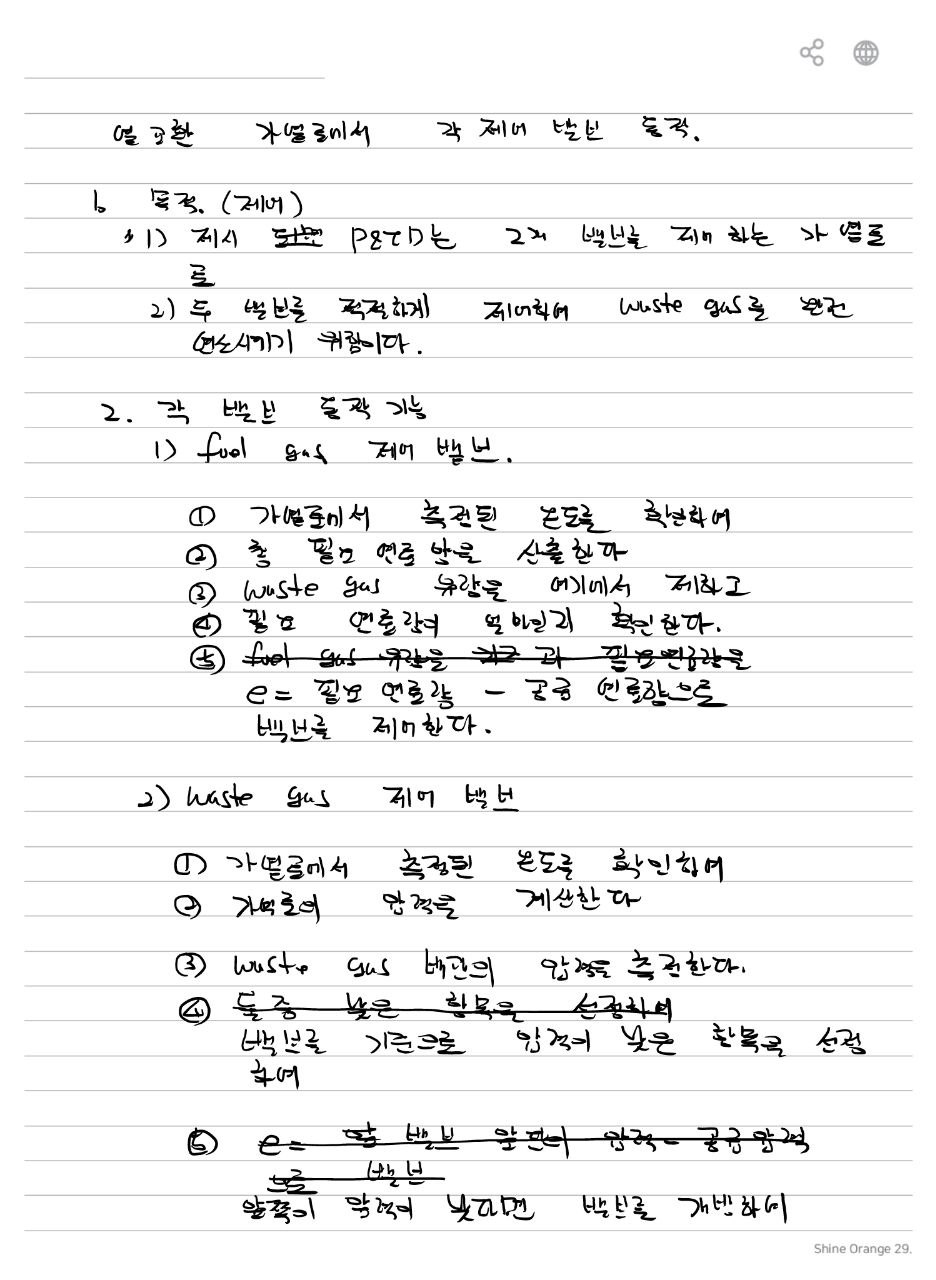 열교환 가열로에서 각 제어 밸브 동작.
1. 목적. (제어)
1) 제시 되면 P&ID는 2개 밸브를 제어하는 가열로
로
2) 두 밸브를 적절하게 제어하여 waste gas를 완전
연소시키기 위함이다.
2. 각 밸브 동작 기능
1) fuel gas 제어 밸브.
① 가열로에서 측정된 온도를 확인하여
② 총 필요 연료량을 산출한다
③ waste gas 유량을 여기에서 제하고
④ 필요 연료량이 얼마인지 확인한다.
⑤ fuel gas 유량을 과 필요연료량을
e = 필요 연료량 - 공급 연료량으로
밸브를 제어한다.
2) waste gas 제어 밸브
① 가열로에서 측정된 온도를 확인하여
② 가열로의 압력을 계산한다
③ waste gas 배관의 압력을 측정한다.
④ 둘 중 낮은 항목을 선정하여
밸브를 기준으로 압력이 낮은 항목을 선정
하여
⑤ e = 밸브 앞단의 압력 - 공급압력
으로 밸브
앞쪽이 압력이 낮다면 밸브를 개방하여
Shine Orange 29.